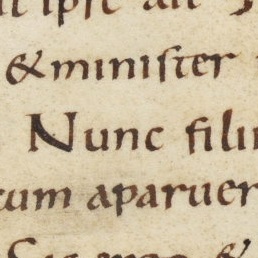 ipse ait
&minister
Nunc filii
cum aparuer
ergo &